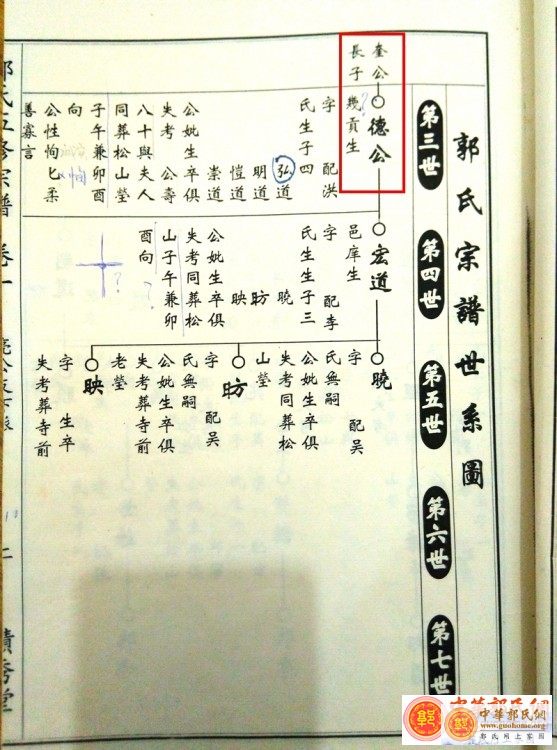 郭氏宗譜世系圖
第三世
第四世
第五世
第六世
第七世
奎公
長子
德公
幾貢生
字 配洪
氏生子四
弘道
明道
愷道
崇道
公妣生卒俱
失考 公壽
八十與夫人
同葬松山塋
子午兼卯酉
向
公性恂匕柔
善寡言
宏道
邑庠生
字 配李
氏生子三
曉
昉
映
公妣生卒俱
失考同葬松
山子午兼卯
酉向
曉
字 配吴
氏無嗣
公妣生卒俱
失考同葬松
山塋
昉
字 配吴
氏無嗣
公妣生卒俱
失考葬寺前
老塋
映
字 生卒
失考葬寺前
郭氏五修宗譜 卷一
二
積秀堂
中華郭氏網
中華郭氏網
www.guohome.org
郭氏網上家園